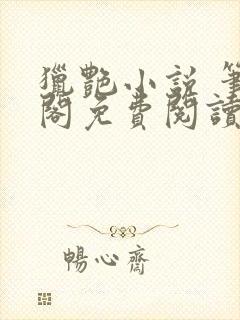 獵艷小說 筆
閣免費閱讀
暢心齋